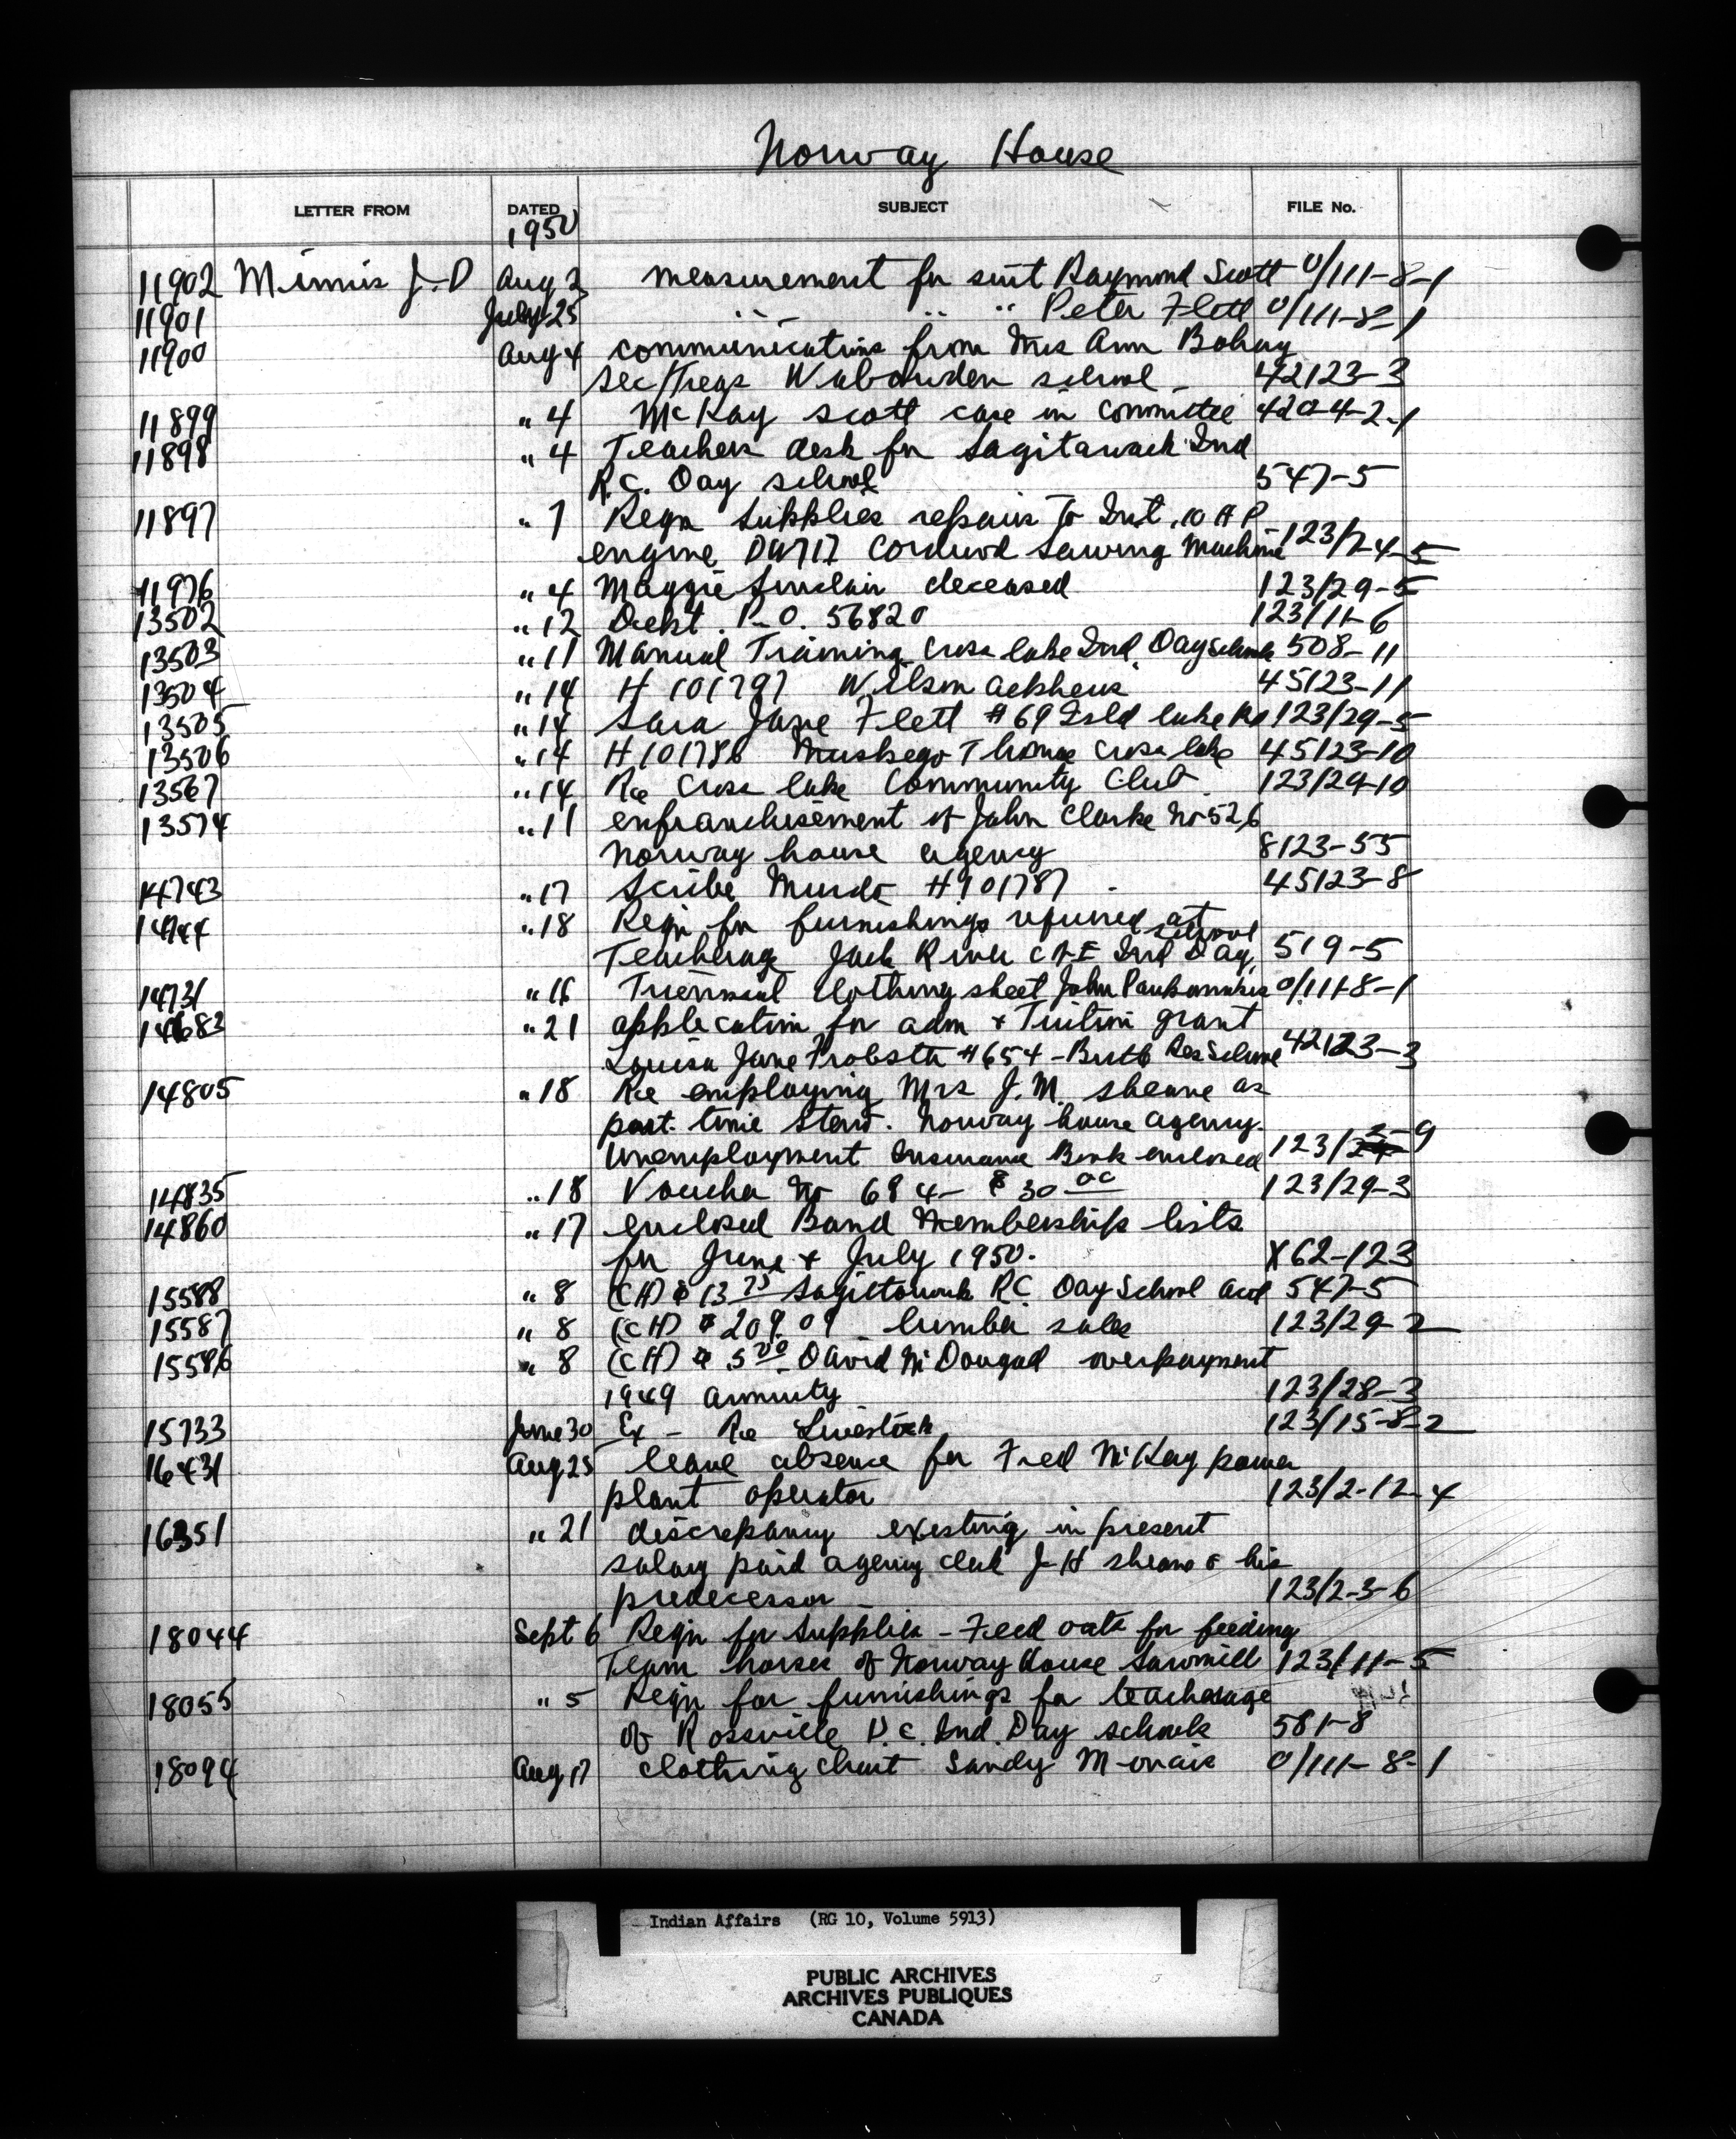 Norway House
LETTER FROM DATED SUBJECT FILE No.
1950
11902 J.D Aug 2 measurement for suit Raymond Scott 0/111-8-1
11901 July 25 " " " Peter Flett 0/111-8-1
11900 Aug 4 communications from Mrs Ann Bohay
sec/Treas Wabowden school - 42123-3
11899 " 4 McKay Scott case in committee 4204-2-1
11898 " 4 Teachers desk for Sagitawack Ind
R.C. Day school 547-5
11897 " 7 Reqn Supplies repairs to Int. 10 H P
engine Cordwood Sawing Machine 123/2-4-5
11976 " 4 Maggie Sinclair deceased 123/29-5
13502 " 12 Dept. P.O. 56820 123/11-6
13503 " 11 Manual Training Cross lake Ind. Day School 508-11
13504 " 14 H 101797 Wilson 45123-11
13505 " 14 Sara Jane Flett #69 Isld lake Re 123/29-5
13506 " 14 H 101786 Muskego Thomas Cross lake 45123-10
13567 " 14 Re Cross lake Community Club. 123/29-10
13574 " 11 enfranchisement of John Clarke No 526
Norway house agency 8123-55
14743 " 17 Scribe Murdo H 101787 - 45123-8
14744 " 18 Reqn for furnishings required at
Teacherage Jack River C of E Ind Day school 519-5
14731 " 16 Triennial Clothing sheet John 0/111-8-1
14683 " 21 application for adm + Tuition grant
Louisa Jane Frobster #654 - Res School 42123-3
14805 " 18 Re employing Mrs J.M. sheare as
part time Steno. Norway house agency.
Unemployment Insurance Book enclosed 123/2-9
14835 " 18 Voucher No 684 - $30 00 123/29-3
14860 " 17 enclosed Band Membership lists
for June + July 1950. X62-123
15588 " 8 (CH) $13 75 Sagittawak RC. Day School acct 547-5
15587 " 8 (CH) $209.09 lumber sales 123/29-2
15586 " 8 (CH) $5 00 - David McDougad overpayment
1949 annuity 123/28-3
15733 June 30 Ex - Re Livestock 123/15-8-2
16431 Aug 25 leave absence for Fred McKay power
plant operator 123/2-12-4
16351 " 21 discrepancy existing in present
salary paid agency clerk J-H sheare & his
predecessor - 123/2-3-6
18044 Sept 6 Reqn for Supplies - Feed oats for feeding
Team horses of Norway House Sawmill 123/11-5
18055 " 5 Reqn for furnishings for teacherage
of Rossville U.C. Ind. Day schools 581-8
18094 Aug 17 clothing chart Sandy 0/111-8-1
Indian Affairs (RG 10, Volume 5913)
PUBLIC ARCHIVES
ARCHIVES PUBLIQUES
CANADA